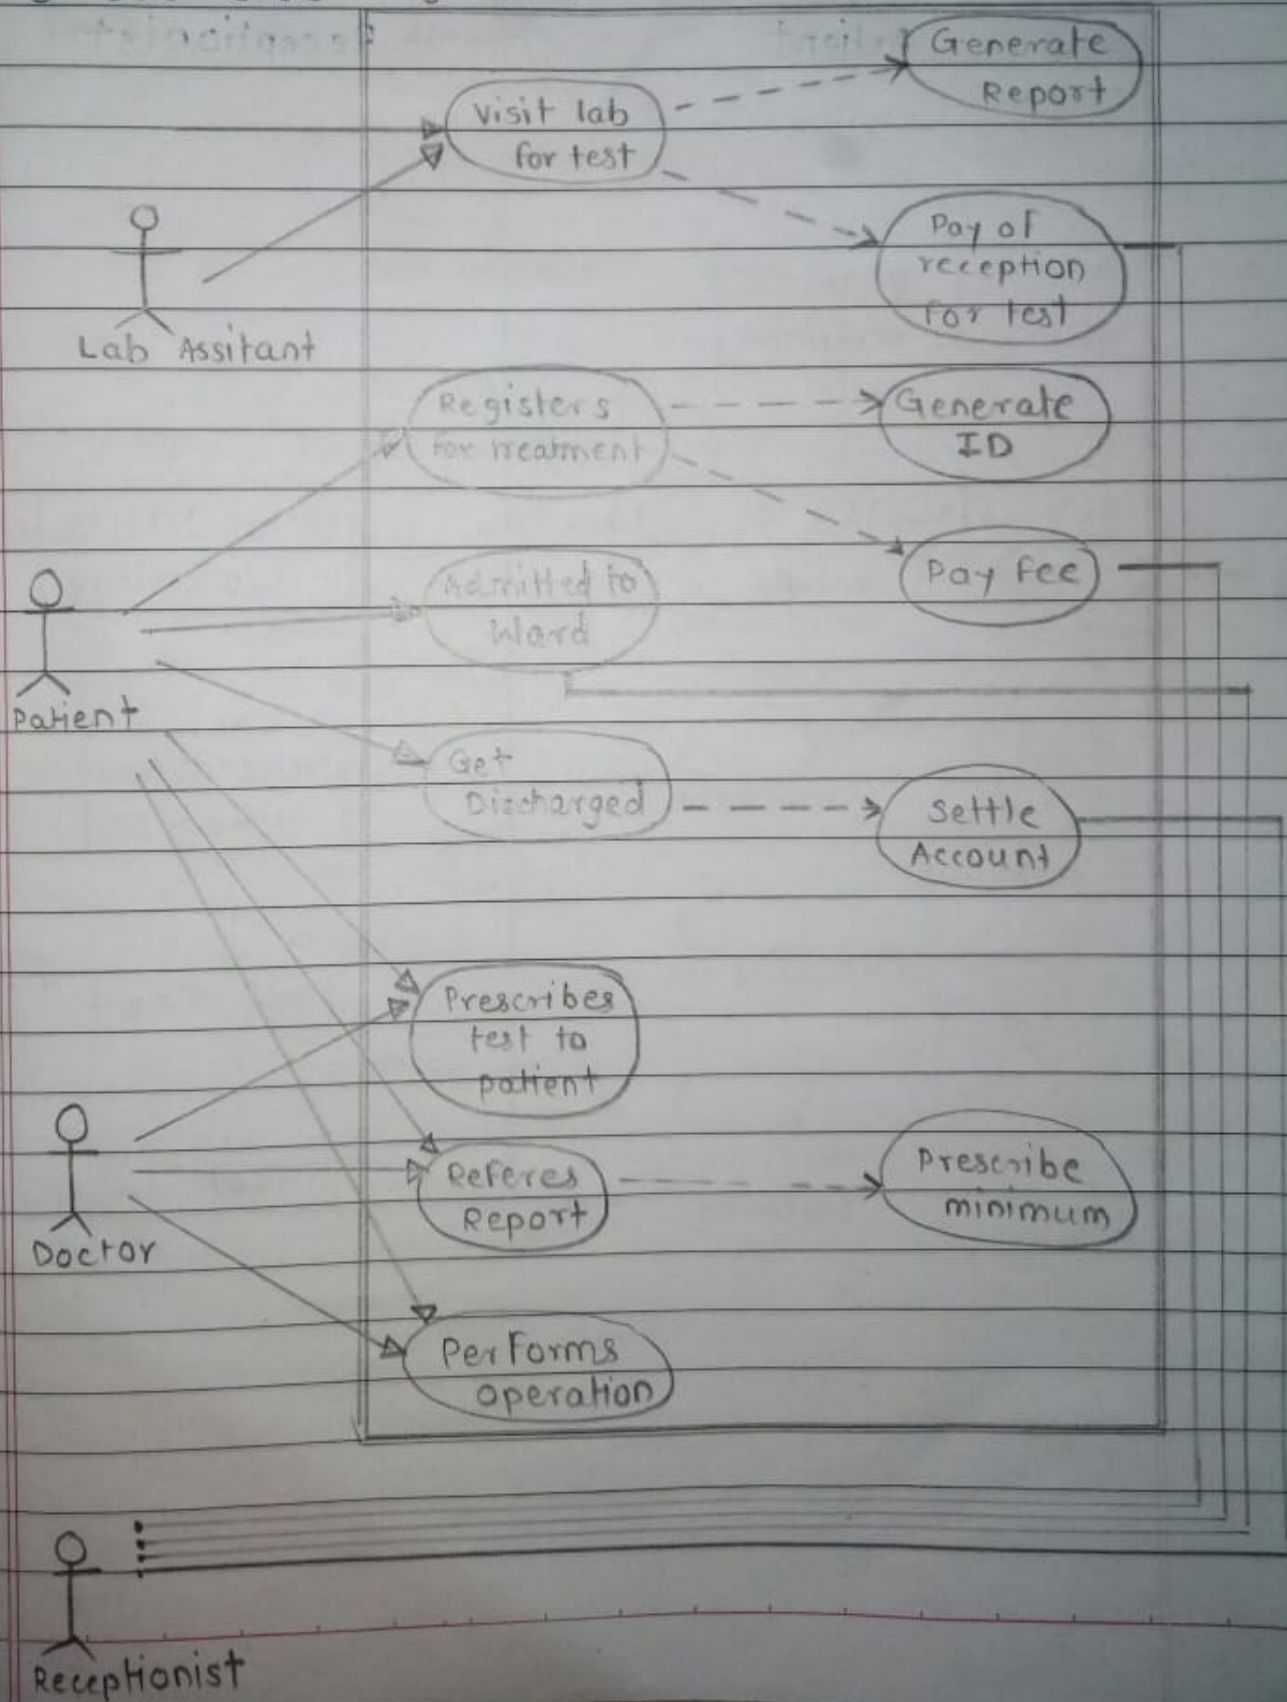 Generate
Report
Visit lab
for test
Pay of
reception
for test
Lab Assitant
Registers
for treatment
Generate
ID
Admitted to
Ward
Pay fee
Patient
Get
Discharged
Settle
Account
Prescribes
test to
patient
Referes
Report
Prescribe
minimum
Doctor
Performs
operation
Receptionist